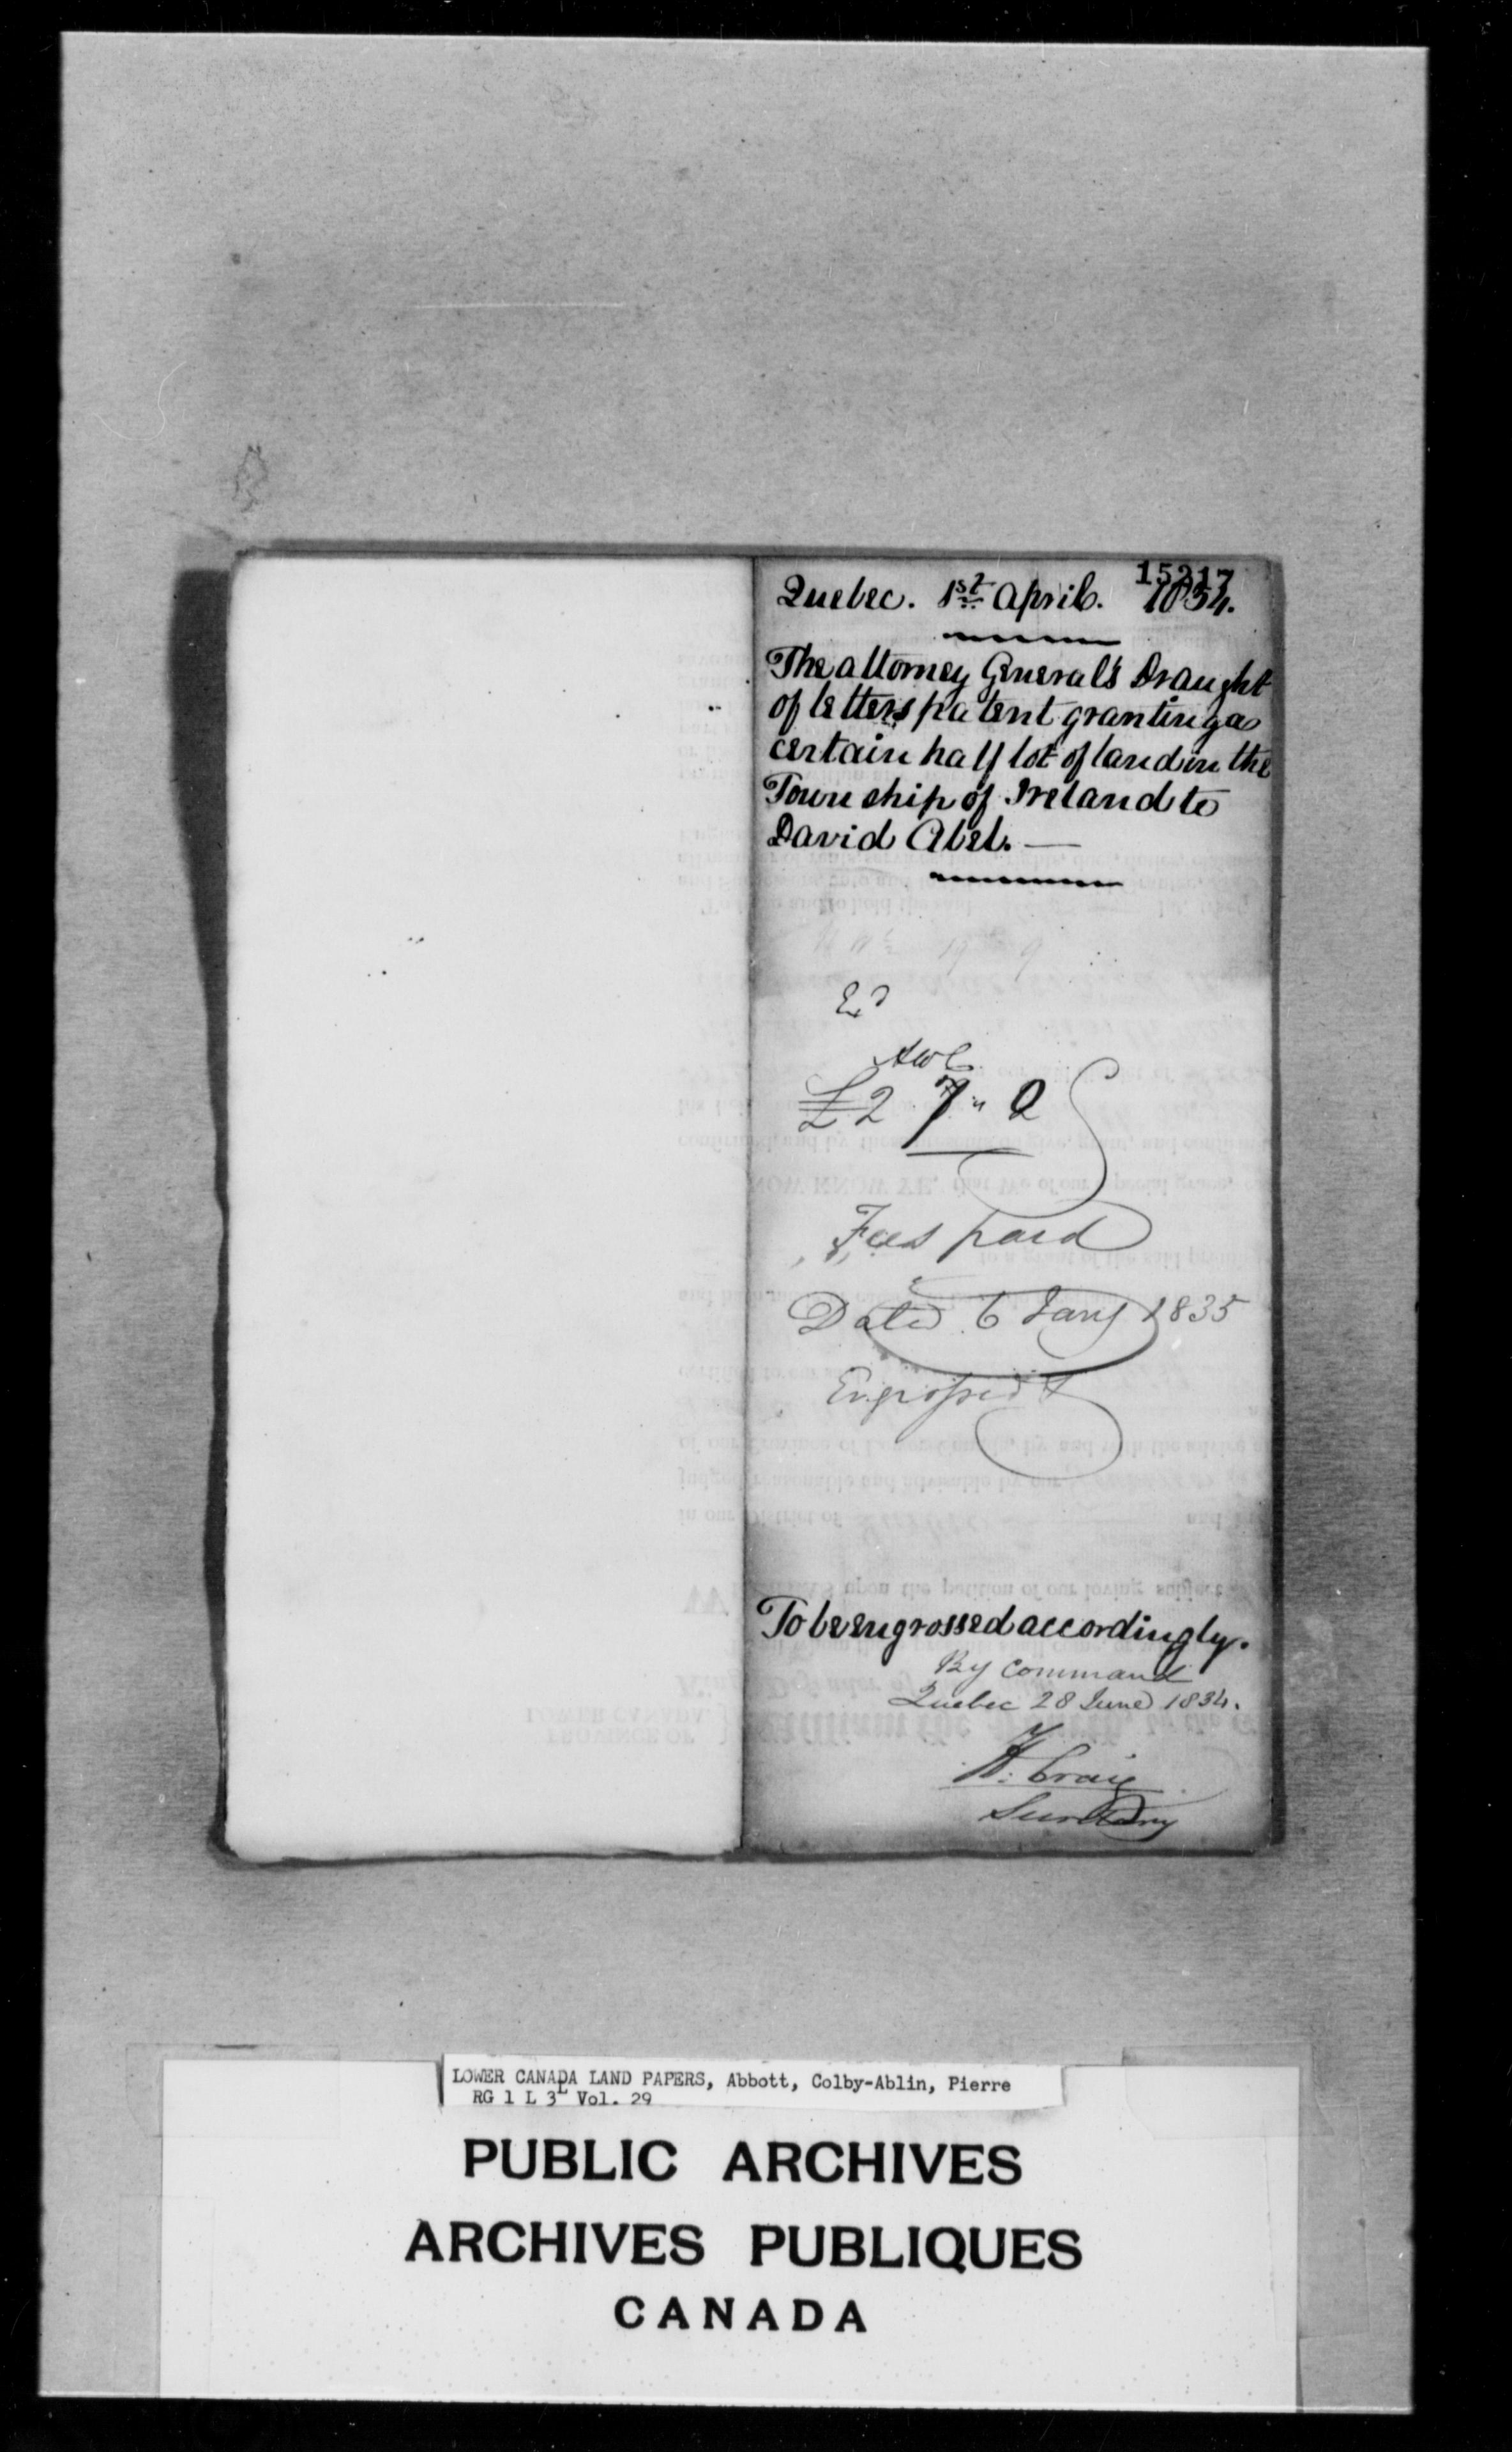 15217
Quebec. 1st April. 1834.
The Attorney General's Draught
of letters patent granting a
certain half lot of land in the
Township of Ireland to
David Abel. —
Ed
£2 7 " 0
Fees paid
Dated 6 Jany 1835
Engrossed
To be engrossed accordingly.
By Command
Quebec 28 June 1834.
H: Craig
Secretary
LOWER CANADA LAND PAPERS, Abbott, Colby-Ablin, Pierre
RG 1 L 3L Vol. 29
PUBLIC ARCHIVES
ARCHIVES PUBLIQUES
CANADA